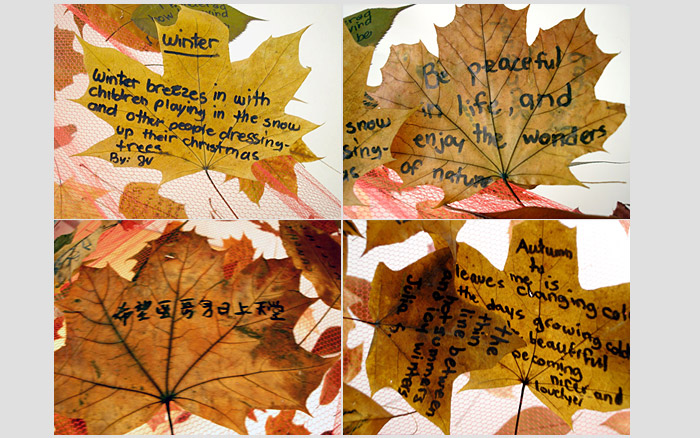 winter
winter breezes in with
children playing in the snow
and other people dressing-
up their christmas
trees
By: gv
wind
be
snow
sing-
Be peaceful
in life, and
enjoy the wonders
of nature
希望
日上天堂
The
thin
line between
summers
and icy winters
Julia S
Autumn
to
me is
leaves changing col
the days growing cold
beautiful
becoming
nicer and